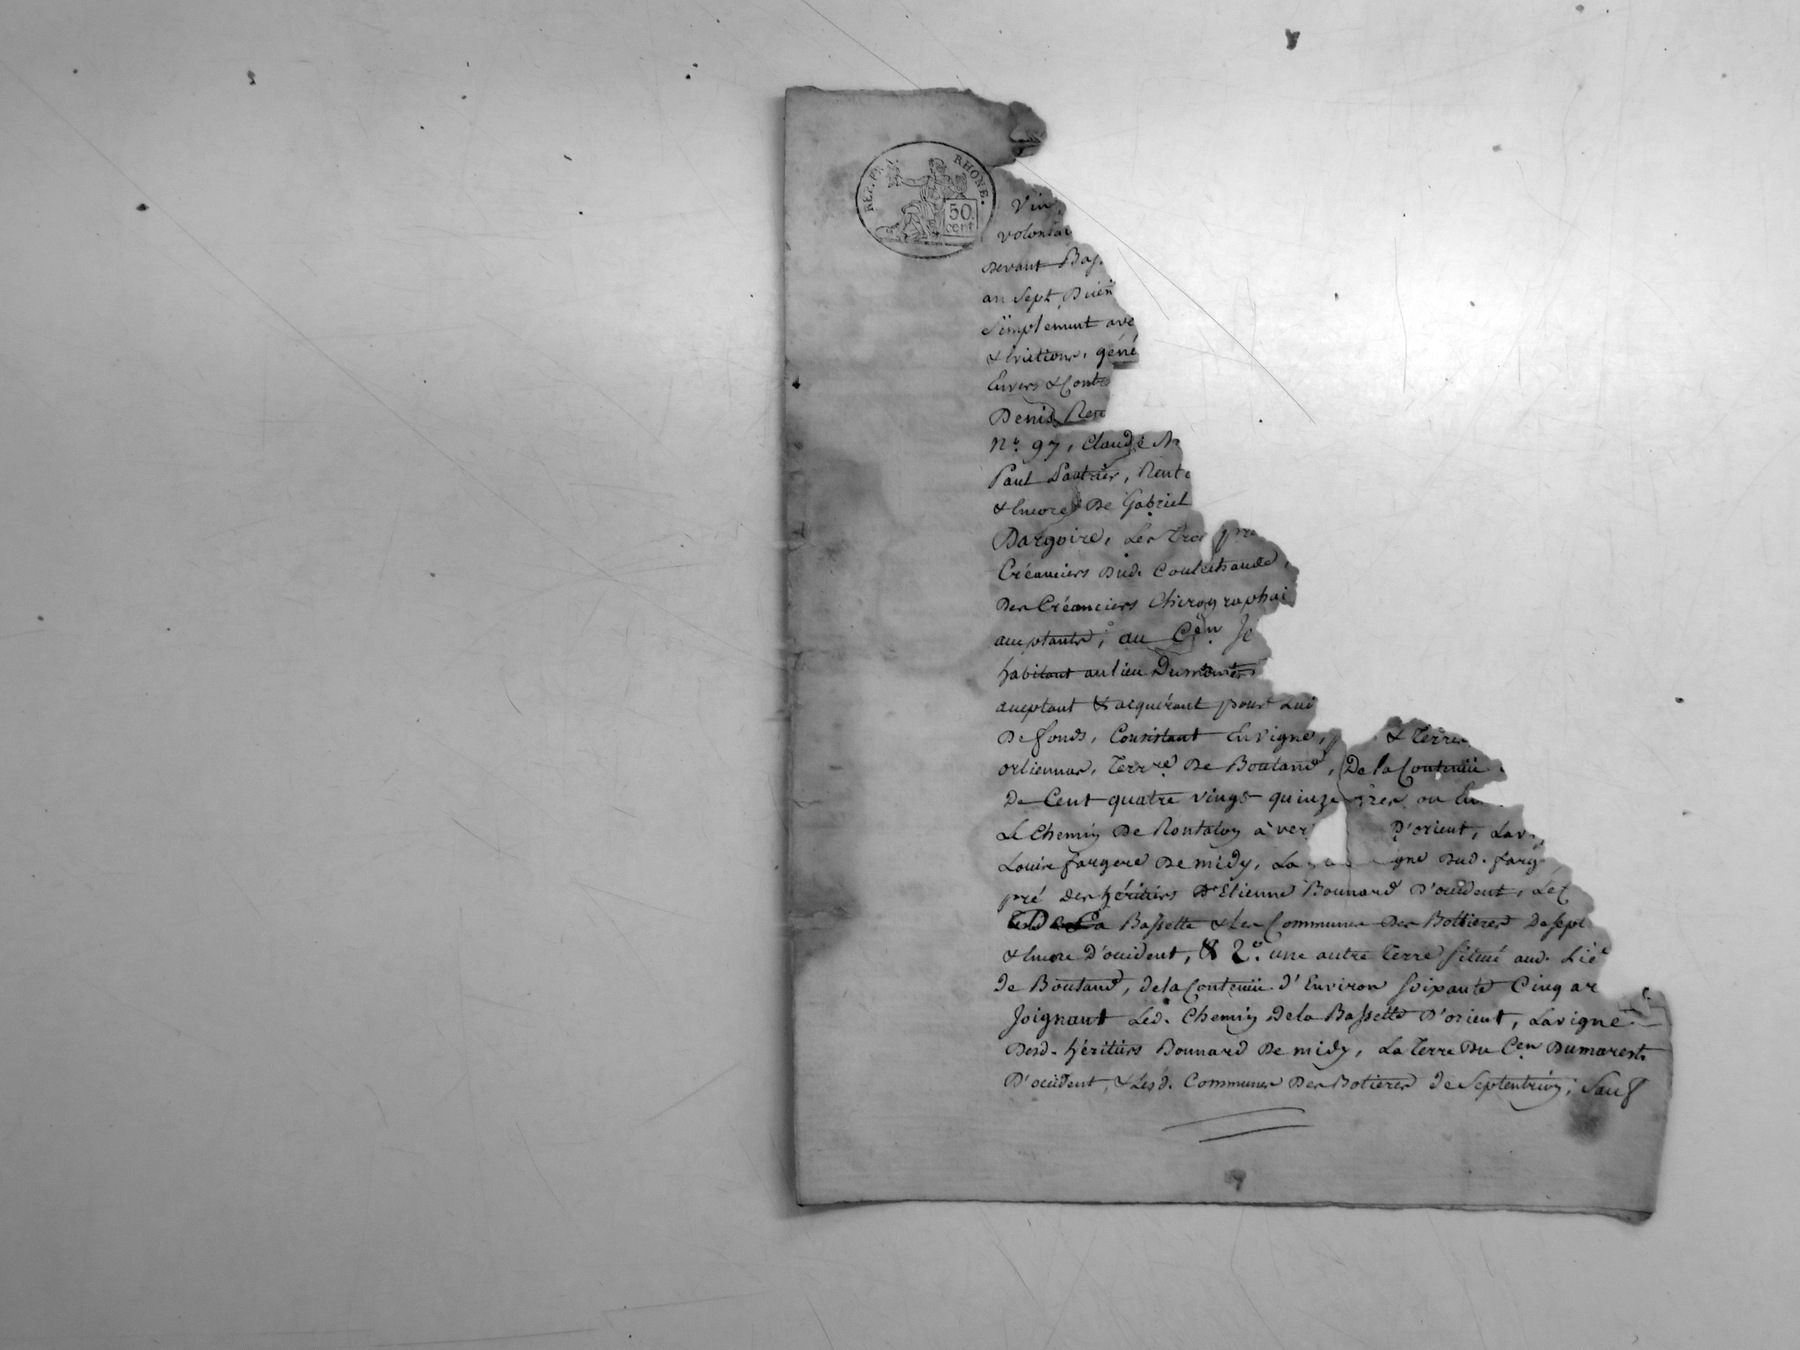 REP. FRA. RHONE.
50
cent
Vin
volontai
Devant Bas
an Sept, Duem
Simplement ave
& évictions, géné
Envers & Contre
Denis Rero
N.° 97, Claude
Paul Pautrier, Rente
& Encore De Gabriel
Dargoire, Les Troi pre
Créanciers Dud. Coulechaude,
Des Créanciers Chirographai
acceptante, au C.en Je
habitant au lieu Dumarest
acceptant & acquérant pour Lui
De fonds, Consistant En vigne, p & Terre
orliennas, Terre De Boutand, De la Contenüe
De Cent quatre vingt quinze ares ou En
Le Chemin De Rontalon à ver D'orient, La v
Louis fargere De midy, La gne Dud. farg
pré des héritiers D'Etienne Bonnard D'occident, Le C
De La Bassette & Les Communes Des Bottieres De sept
& Encore D'occident, & 2.° une autre Terre Située aud. Lie
de Boutand, de la Contenüe d'Environ Soixante Cinq ar
Joignant Led. Chemin de la Bassette D'orient, La vigne
Desd. héritiers Bonnard De midy, La Terre Du C.en Dumarest
D'occident, & Lesd. Communes Des Botieres de Septentrion, Sauf